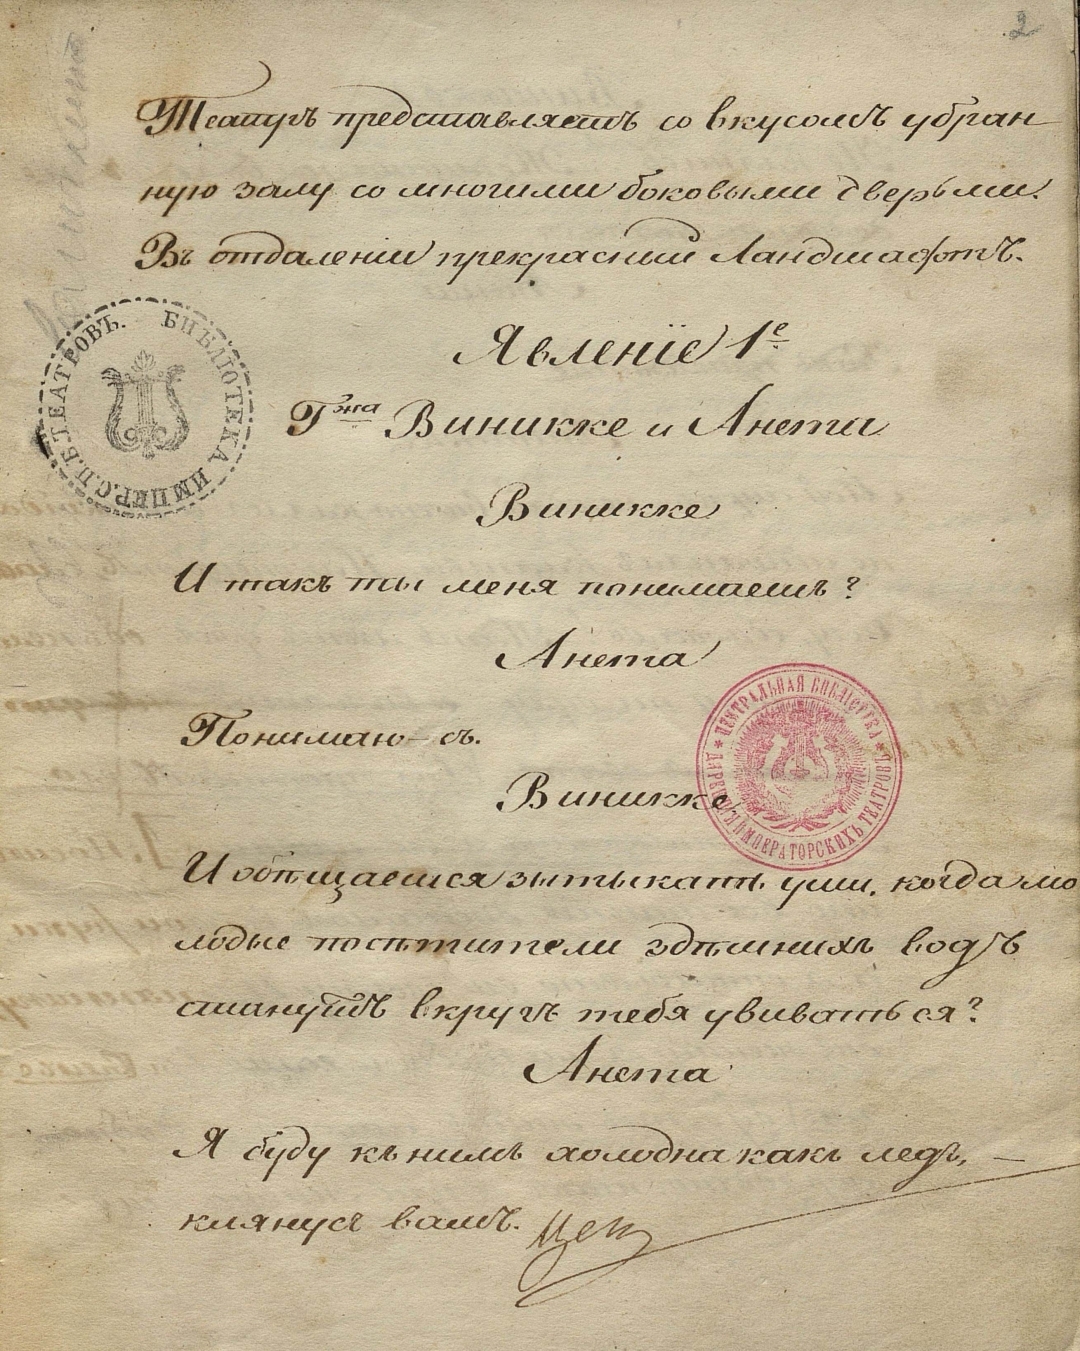 2
Театръ представляетъ со вкусомъ убран
ную залу со многими боковыми дверьми.
Въ отдаленіи прекрасный Ландшафтъ.
БИБЛІОТЕКА ИМПЕР. С.П.Б. ТЕАТРОВЪ.
Явленіе 1е
Гжа Виникке и Анета
Виникке
И такъ ты меня понимаешь?
Анета
Понимаю-съ.
ЦЕНТРАЛЬНАЯ БИБЛІОТЕКА
ДИРЕКЦІИ ИМПЕРАТОРСКИХЪ ТЕАТРОВЪ
Виникке
И обѣщаешся зытыкать уши, когда мо
лодые посѣтители здѣшнихъ водъ
станутъ вкругъ тебя увиваться?
Анета
Я буду къ нимъ холодна какъ ледъ, —
клянусь вамъ.